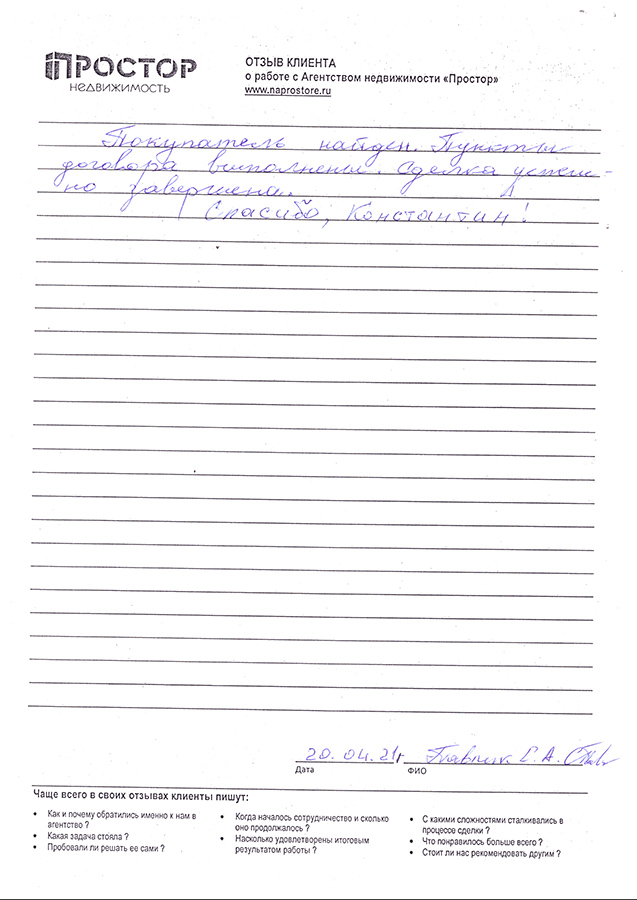 ПРОСТОР
НЕДВИЖИМОСТЬ
ОТЗЫВ КЛИЕНТА
о работе с Агентством недвижимости «Простор»
www.naprostore.ru
Покупатель найден. Пункты
договора выполнены. Сделка успеш-
но завершена.
Спасибо, Константин!
20.04.21г
С. А.
Дата
ФИО
Чаще всего в своих отзывах клиенты пишут:
• Как и почему обратились именно к нам в
агентство ?
• Какая задача стояла ?
• Пробовали ли решать ее сами ?
• Когда началось сотрудничество и сколько
оно продолжалось ?
• Насколько удовлетворены итоговым
результатом работы ?
• С какими сложностями сталкивались в
процессе сделки ?
• Что понравилось больше всего ?
• Стоит ли нас рекомендовать другим ?